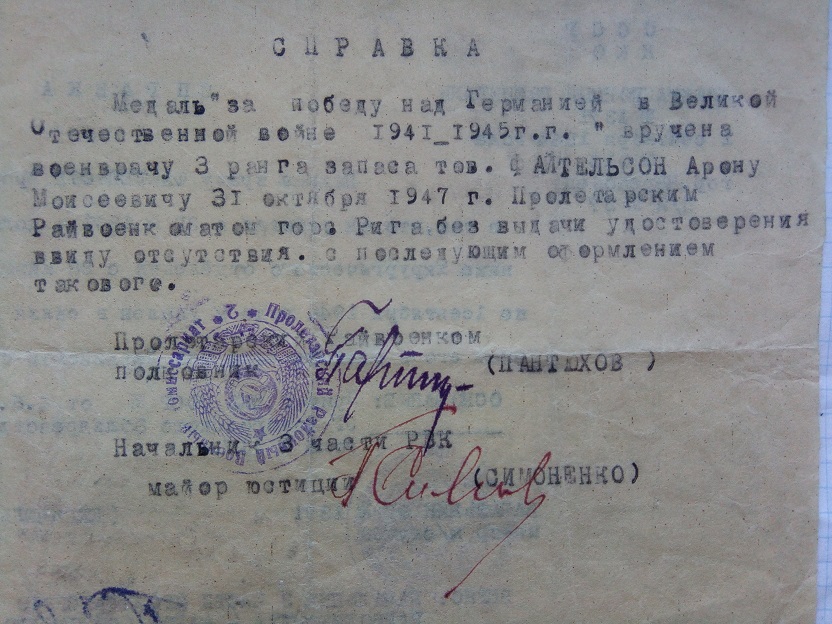 СПРАВКА
Медаль "за победу над Германией в Великой
Отечественной войне 1941_1945г.г. " вручена
военврачу 3 ранга запаса тов. ФАЙТЕЛЬСОН Арону
Моисеевичу 31 октября 1947 г. Пролетарским
Райвоенкоматом гор. Рига без выдачи удостоверения
ввиду отсутствия. с последующим оформлением
такового.
Пролетарски Райвоенком
полковник (ПАНТЮХОВ )
Начальник 3 части РВК
майор юстиции (СИМОНЕНКО)
* 2 * Пролетарский Районный Военный Комиссариат